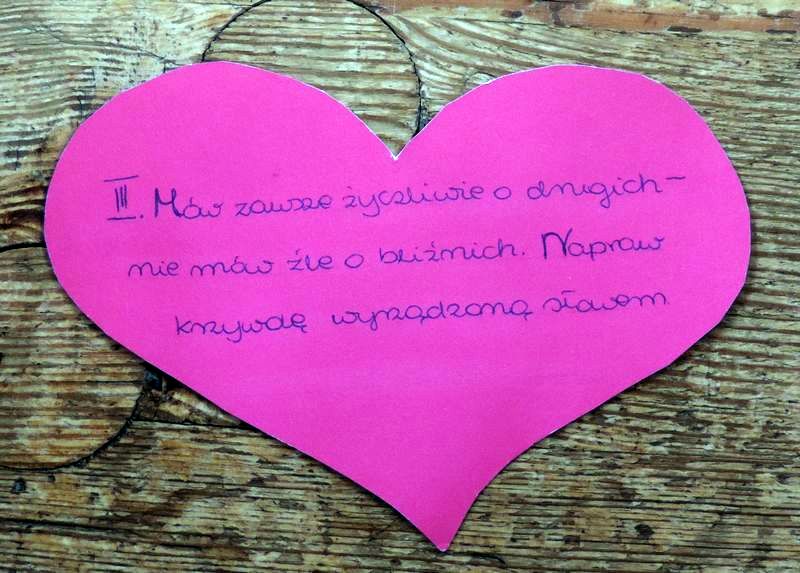 III. Mów zawsze życzliwie o drugich -
nie mów źle o bliźnich. Napraw
krzywdę wyrządzoną słowem